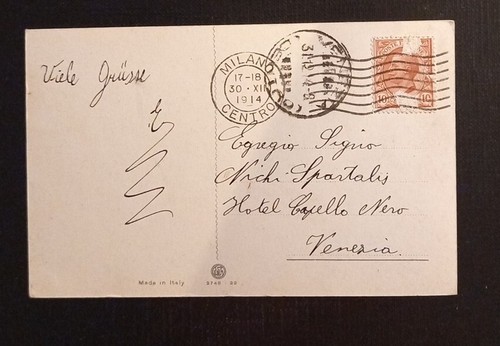 Viele Grüsse
MILANO
17-18
30 · XII
1914
CENTRO
10 10
Egregio Signo
Nichi Spartalis
Hotel Capello Nero
Venezia.
Made in Italy